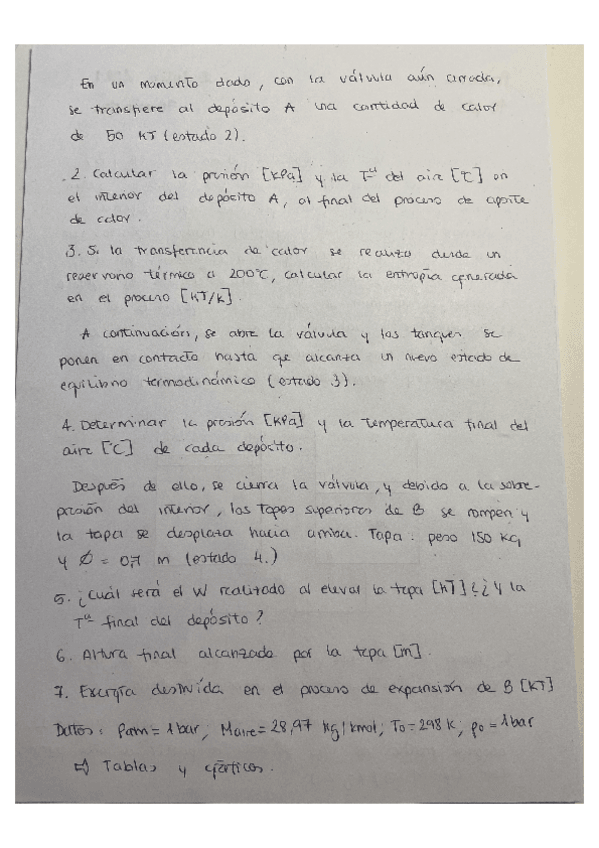 En un momento dado, con la válvula aún cerrada,
se transfiere al depósito A una cantidad de calor
de 50 KJ (estado 2).
2. Calcular la presión [kPa] y la Tª del aire [℃] en
el interior del depósito A, al final del proceso de aporte
de calor.
3. Si la transferencia de calor se realiza desde un
reservorio térmico a 200℃, calcular la entropía generada
en el proceso [KJ/K].
A continuación, se abre la válvula y los tanques se
ponen en contacto hasta que alcanza un nuevo estado de
equilibrio termodinámico (estado 3).
4. Determinar la presión [KPa] y la temperatura final del
aire [℃] de cada depósito.
Después de ello, se cierra la válvula, y debido a la sobre-
presión del interior, los topes superiores de B se rompen y
la tapa se desplaza hacia arriba. Tapa: peso 150 kg
y Ø = 0,7 m (estado 4.)
5. ¿Cuál será el W realizado al elevar la tapa [kJ]? ¿Y la
Tª final del depósito?
6. Altura final alcanzada por la tapa [m].
7. Exergía destruida en el proceso de expansión de B [KJ]
Datos: Patm = 1 bar; Maire = 28,97 kg/kmol; To = 298 K; po = 1 bar
⇒ Tablas y gráficos.